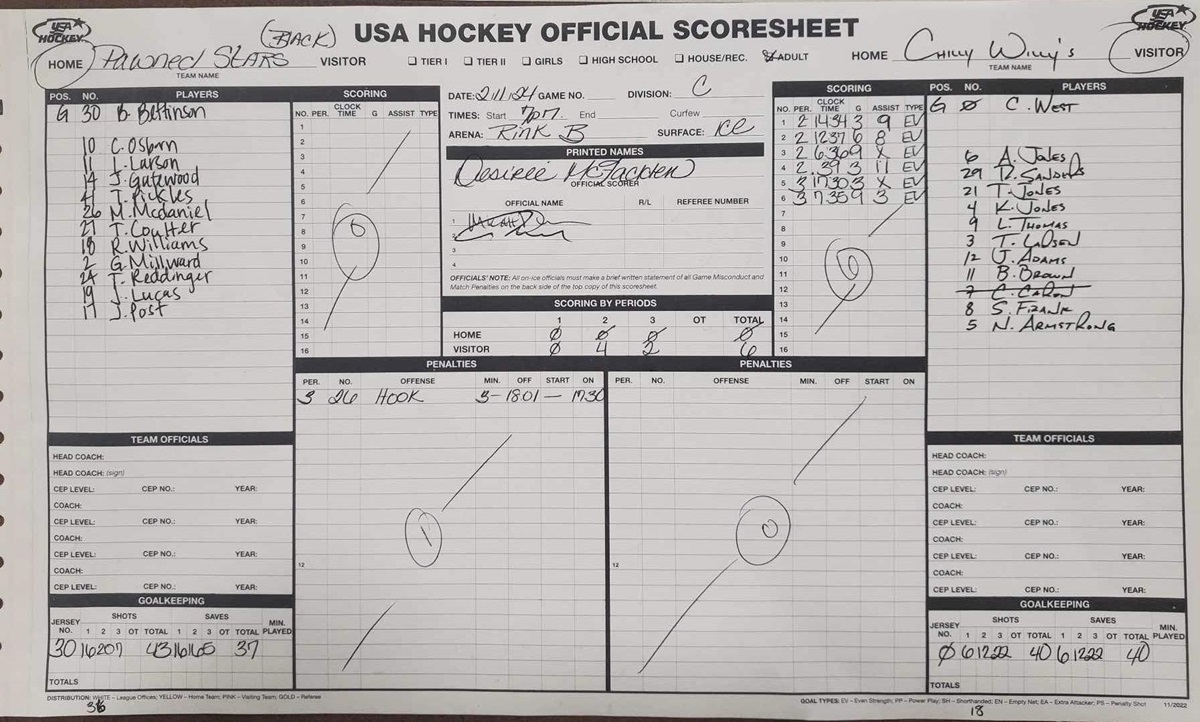 USA HOCKEY
(BACK)
USA HOCKEY OFFICIAL SCORESHEET
USA HOCKEY
HOME Pawned Stars VISITOR
TEAM NAME
☐ TIER I ☐ TIER II ☐ GIRLS ☐ HIGH SCHOOL ☐ HOUSE/REC. ☒ ADULT
HOME Chilly Willy's VISITOR
TEAM NAME
POS. NO. PLAYERS
G 30 B. Bettinson
10 C. Osborn
11 J. Larson
14 J. Gatewood
41 J. Pickles
26 M. Mcdaniel
27 T. Coulter
18 R. Williams
2 G. Millward
24 T. Reddinger
19 J. Lucas
17 J. Post
SCORING
NO. PER. CLOCK TIME G ASSIST TYPE
1
2
3
4
5
6
7
8
9
10
11
12
13
14
15
16
0
DATE: 2/1/24 GAME NO. DIVISION: C
TIMES: Start 7pm End Curfew
ARENA: Rink B SURFACE: ICE
PRINTED NAMES
Desiree McFadden
OFFICIAL SCORER
OFFICIAL NAME R/L REFEREE NUMBER
1
2
3
4
OFFICIALS' NOTE: All on-ice officials must make a brief written statement of all Game Misconduct and
Match Penalties on the back side of the top copy of this scoresheet.
SCORING BY PERIODS
1 2 3 OT TOTAL
HOME 0 0 0 0
VISITOR 0 4 2 6
SCORING
NO. PER. CLOCK TIME G ASSIST TYPE
1 2 1434 3 9 EV
2 2 1237 6 8 EV
3 2 636 9 X EV
4 2 .39 3 11 EV
5 3 1730 3 X EV
6 3 735 9 3 EV
7
8
9
10
11
12
13
14
15
16
6
POS. NO. PLAYERS
G 0 C. WEST
6 A. JONES
29 D. SANDERS
21 T. JONES
4 K. JONES
9 L. THOMAS
3 T. LARSEN
12 J. ADAMS
11 B. BROWN
7 C. CARON
8 S. FRANK
5 N. ARMSTRONG
PENALTIES
PER. NO. OFFENSE MIN. OFF START ON
3 26 HOOK 3- 1801 — 1730
12
1
PENALTIES
PER. NO. OFFENSE MIN. OFF START ON
12
0
TEAM OFFICIALS
HEAD COACH:
HEAD COACH: (sign)
CEP LEVEL: CEP NO.: YEAR:
COACH:
CEP LEVEL: CEP NO.: YEAR:
COACH:
CEP LEVEL: CEP NO.: YEAR:
COACH:
CEP LEVEL: CEP NO.: YEAR:
GOALKEEPING
SHOTS SAVES
JERSEY NO. 1 2 3 OT TOTAL 1 2 3 OT TOTAL MIN. PLAYED
30 16 20 7 43 16 16 5 37
TOTALS
TEAM OFFICIALS
HEAD COACH:
HEAD COACH: (sign)
CEP LEVEL: CEP NO.: YEAR:
COACH:
CEP LEVEL: CEP NO.: YEAR:
COACH:
CEP LEVEL: CEP NO.: YEAR:
COACH:
CEP LEVEL: CEP NO.: YEAR:
GOALKEEPING
SHOTS SAVES
JERSEY NO. 1 2 3 OT TOTAL 1 2 3 OT TOTAL MIN. PLAYED
0 6 12 22 40 6 12 22 40
TOTALS
DISTRIBUTION: WHITE – League Offices; YELLOW – Home Team; PINK – Visiting Team; GOLD – Referee
GOAL TYPES: EV – Even Strength; PP – Power Play; SH – Shorthanded; EN – Empty Net; EA – Extra Attacker; PS – Penalty Shot 11/2022
18